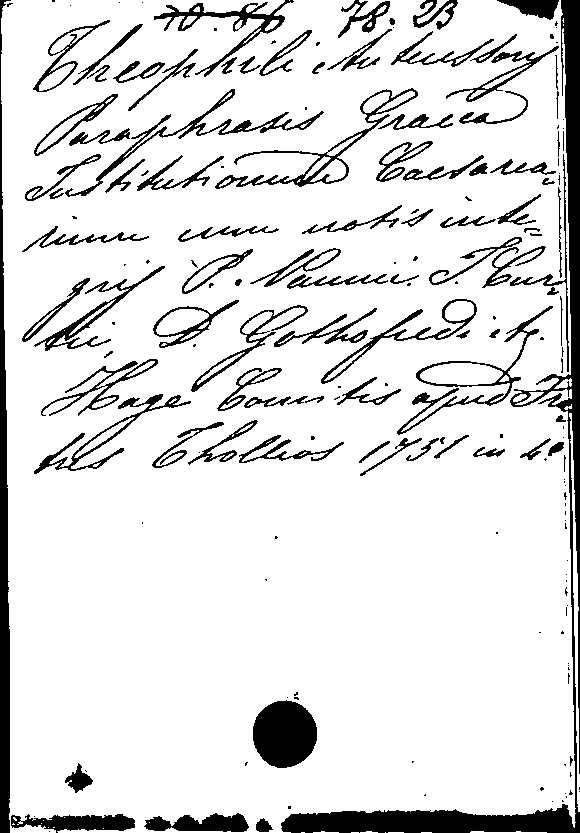 70.86 78.23
Theophili Antecessoris
Paraphrasis Graeca
Institutionum Caesarea-
rum cum notis inte-
gris P. Nannii. J. Cur-
tii, D. Gothofredi etc.
Hage Comitis apud Fra
tres Thollios 1751 in 4º